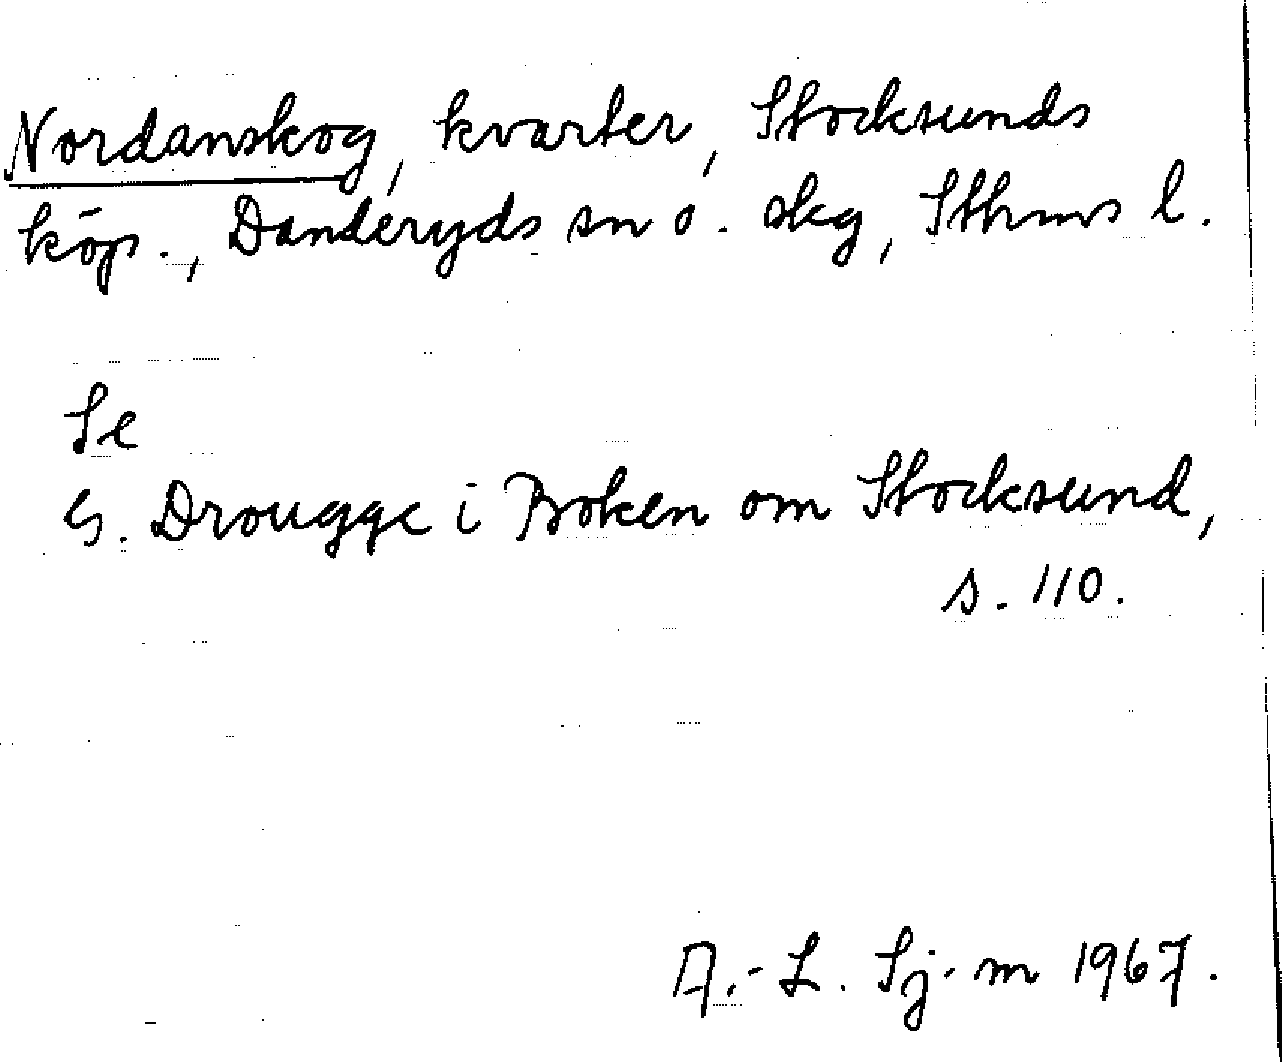 Nordanskog, kvarter, Stocksunds
köp., Danderyds sn o. skg, Sthms l.
Se
G. Drougge i Boken om Stocksund,
s. 110.
A.-L. Sj-m 1967.